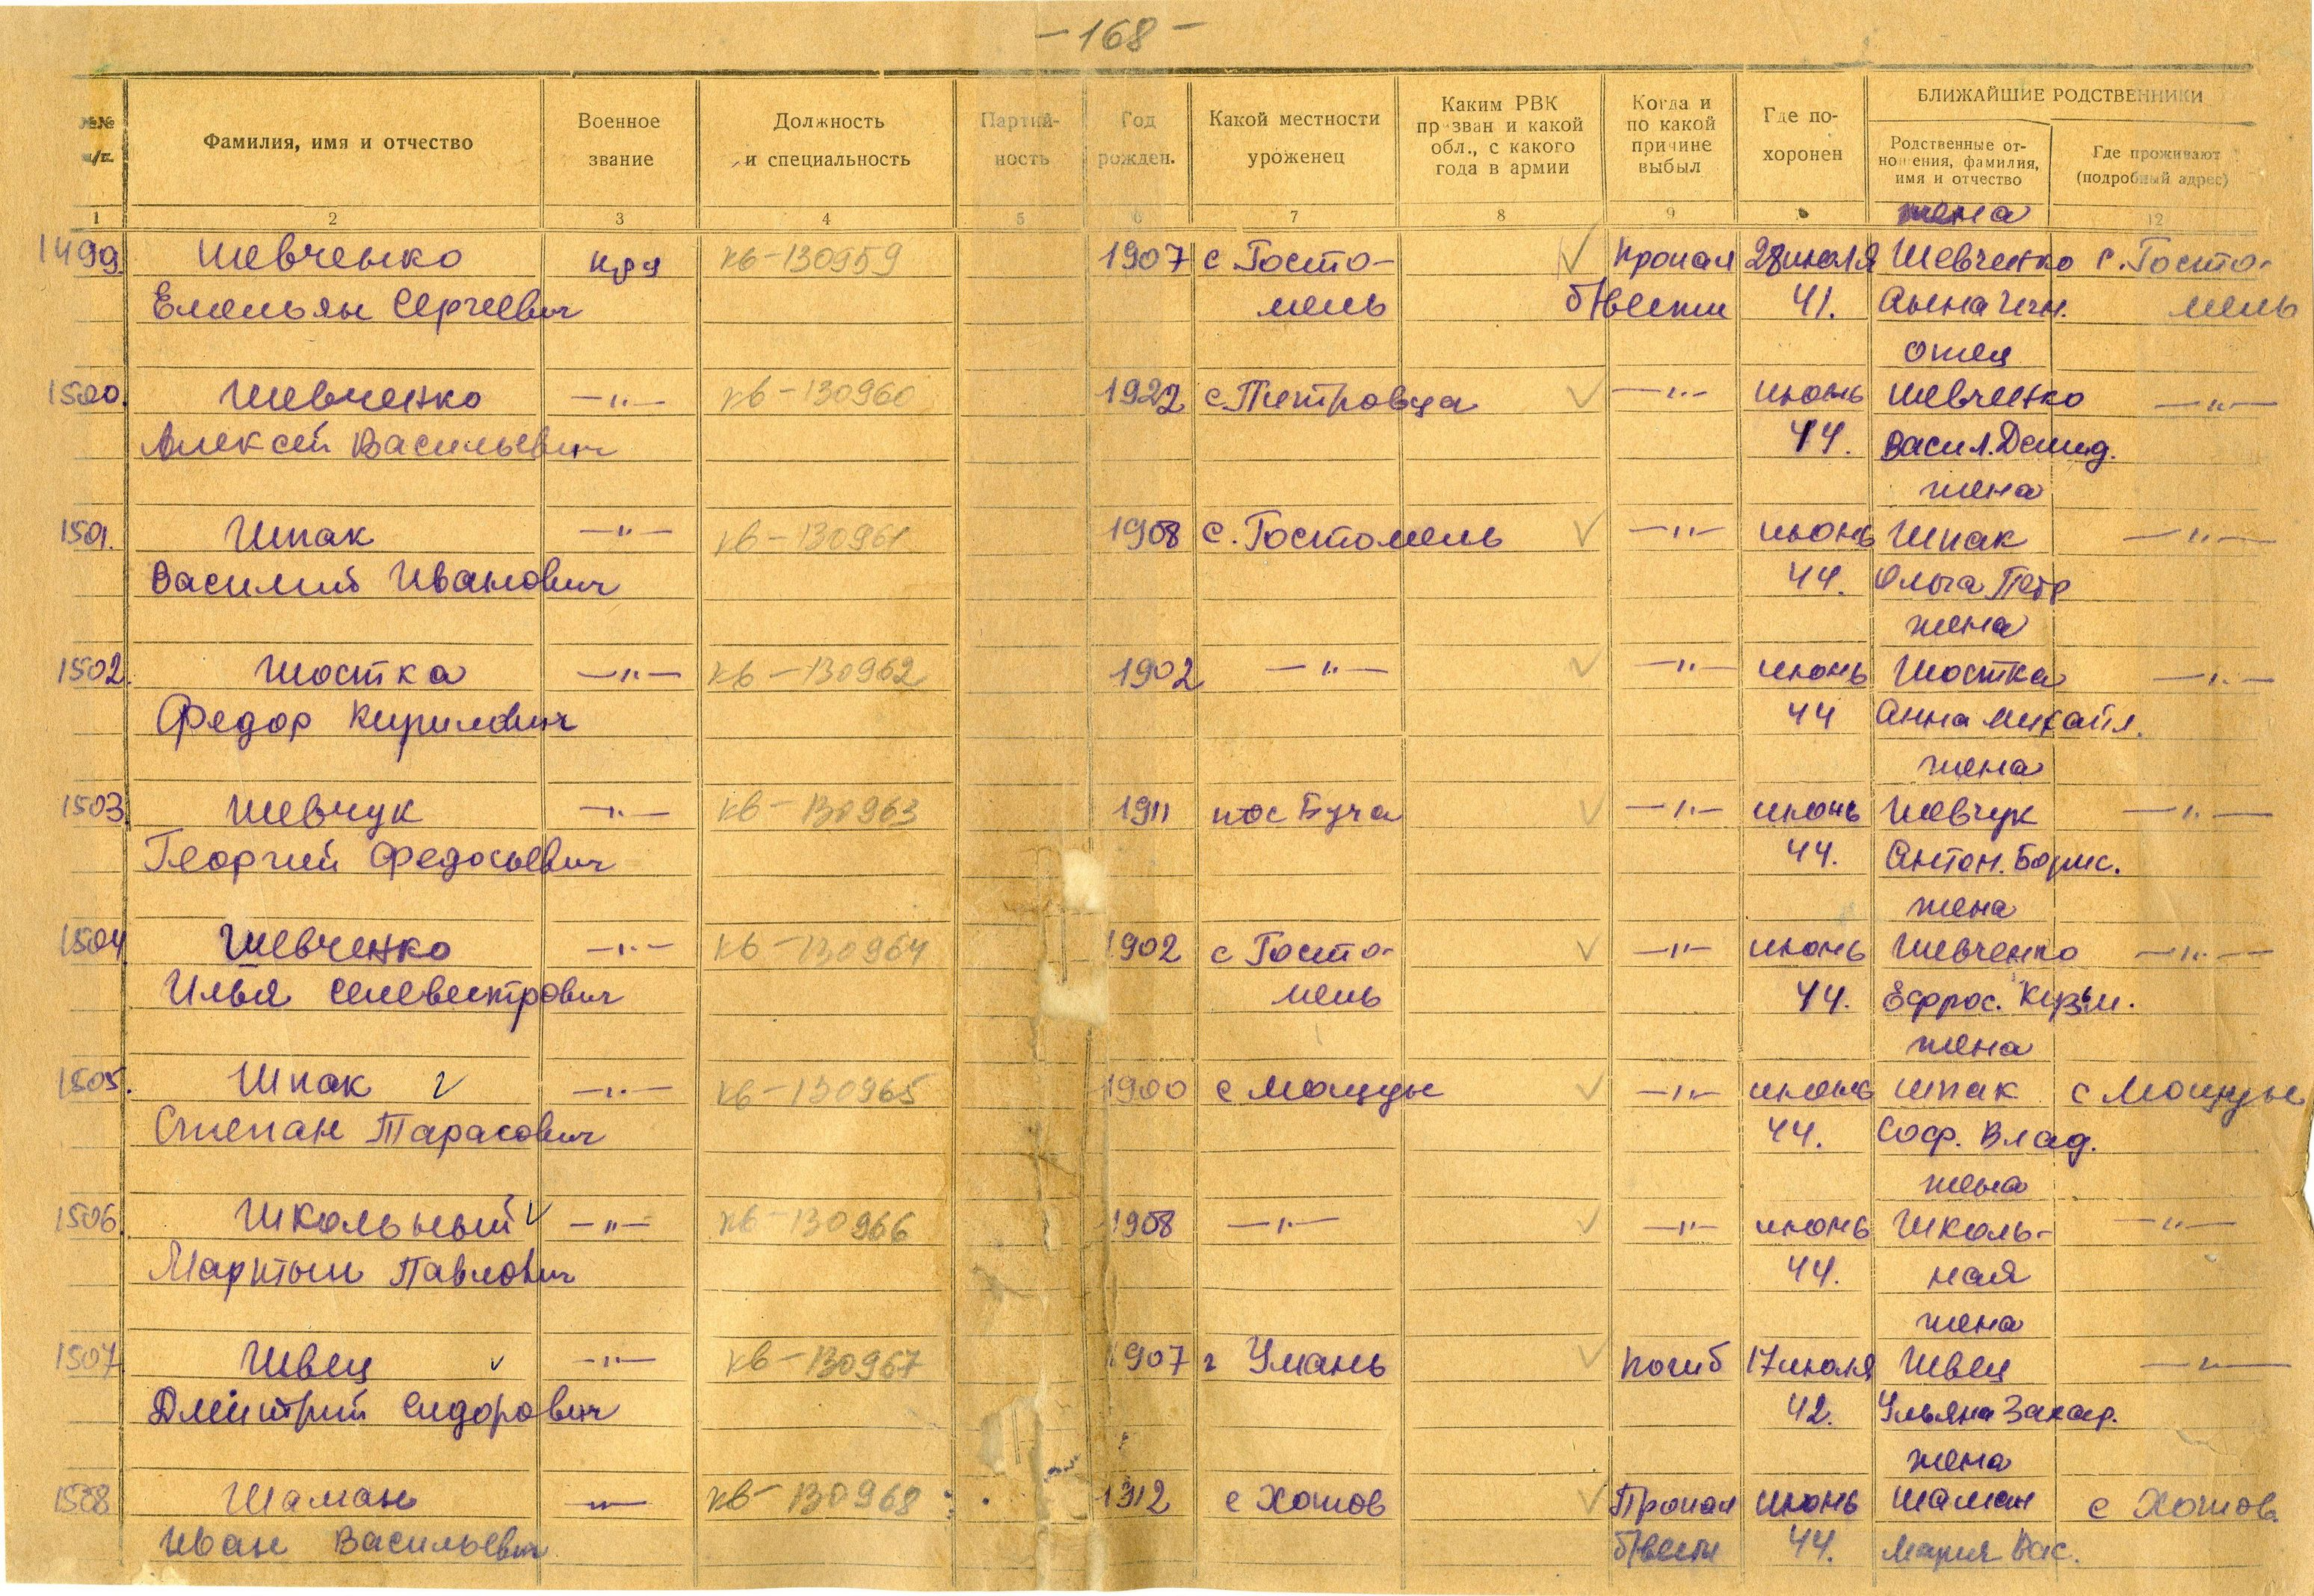 -168-
№№ п/п.
Фамилия, имя и отчество
Военное звание
Должность и специальность
Партий-ность
Год рожден.
Какой местности уроженец
Каким РВК призван и какой обл., с какого года в армии
Когда и по какой причине выбыл
Где по-хоронен
БЛИЖАЙШИЕ РОДСТВЕННИКИ
Родственные от-ношения, фамилия, имя и отчество
Где проживают (подробный адрес)
1 2 3 4 5 6 7 8 9 12
жена
1499 Шевченко кр-ц кв-130959 1907 с Госто- Пропал 28 июля Шевченко с. Госто-
Емельян Сергеевич мель б/вести 41. Анна Игн. мель
отец
1500. Шевченко -"- кв-130960 1922 с. Петровца -"- июнь Шевченко -"-
Алексей Васильевич 44. Васил. Демид.
жена
1501. Шпак -"- кв-130961 1908 с. Гостомель -"- июнь Шпак -"-
Василий Иванович 44. Ольга Петр
жена
1502. Шостка -"- кв-130962 1902 -"- -"- июнь Шостка -"-
Федор Кирилович 44 Анна Михайл.
жена
1503 Шевчук -"- кв-130963 1911 пос Буча -"- июнь Шевчук -"-
Георгий Федосьевич 44. Антон. Борис.
жена
1504 Шевченко -"- кв-130964 1902 с Госто- -"- июнь Шевченко -"-
Илья Селевестрович мель 44. Ефрос. Кузьм.
жена
1505. Шпак -"- кв-130965 1900 с Мощуы -"- июнь Шпак с Мощуны
Степан Тарасович 44. Соф. Влад.
жена
1506. Школьный -"- кв-130966 1908 -"- -"- июнь Школь- -"-
Мартын Павлович 44. ная
жена
1507 Швец -"- кв-130967 1907 г Умань погиб 17 июля Швец -"-
Дмитрий Сидорович 42. Ульяна Захар.
жена
1508 Шаман -"- кв-130968 1912 с Хотов Пропал июнь Шаман с Хотов.
Иван Васильевич б/вести 44. Мария Вас.